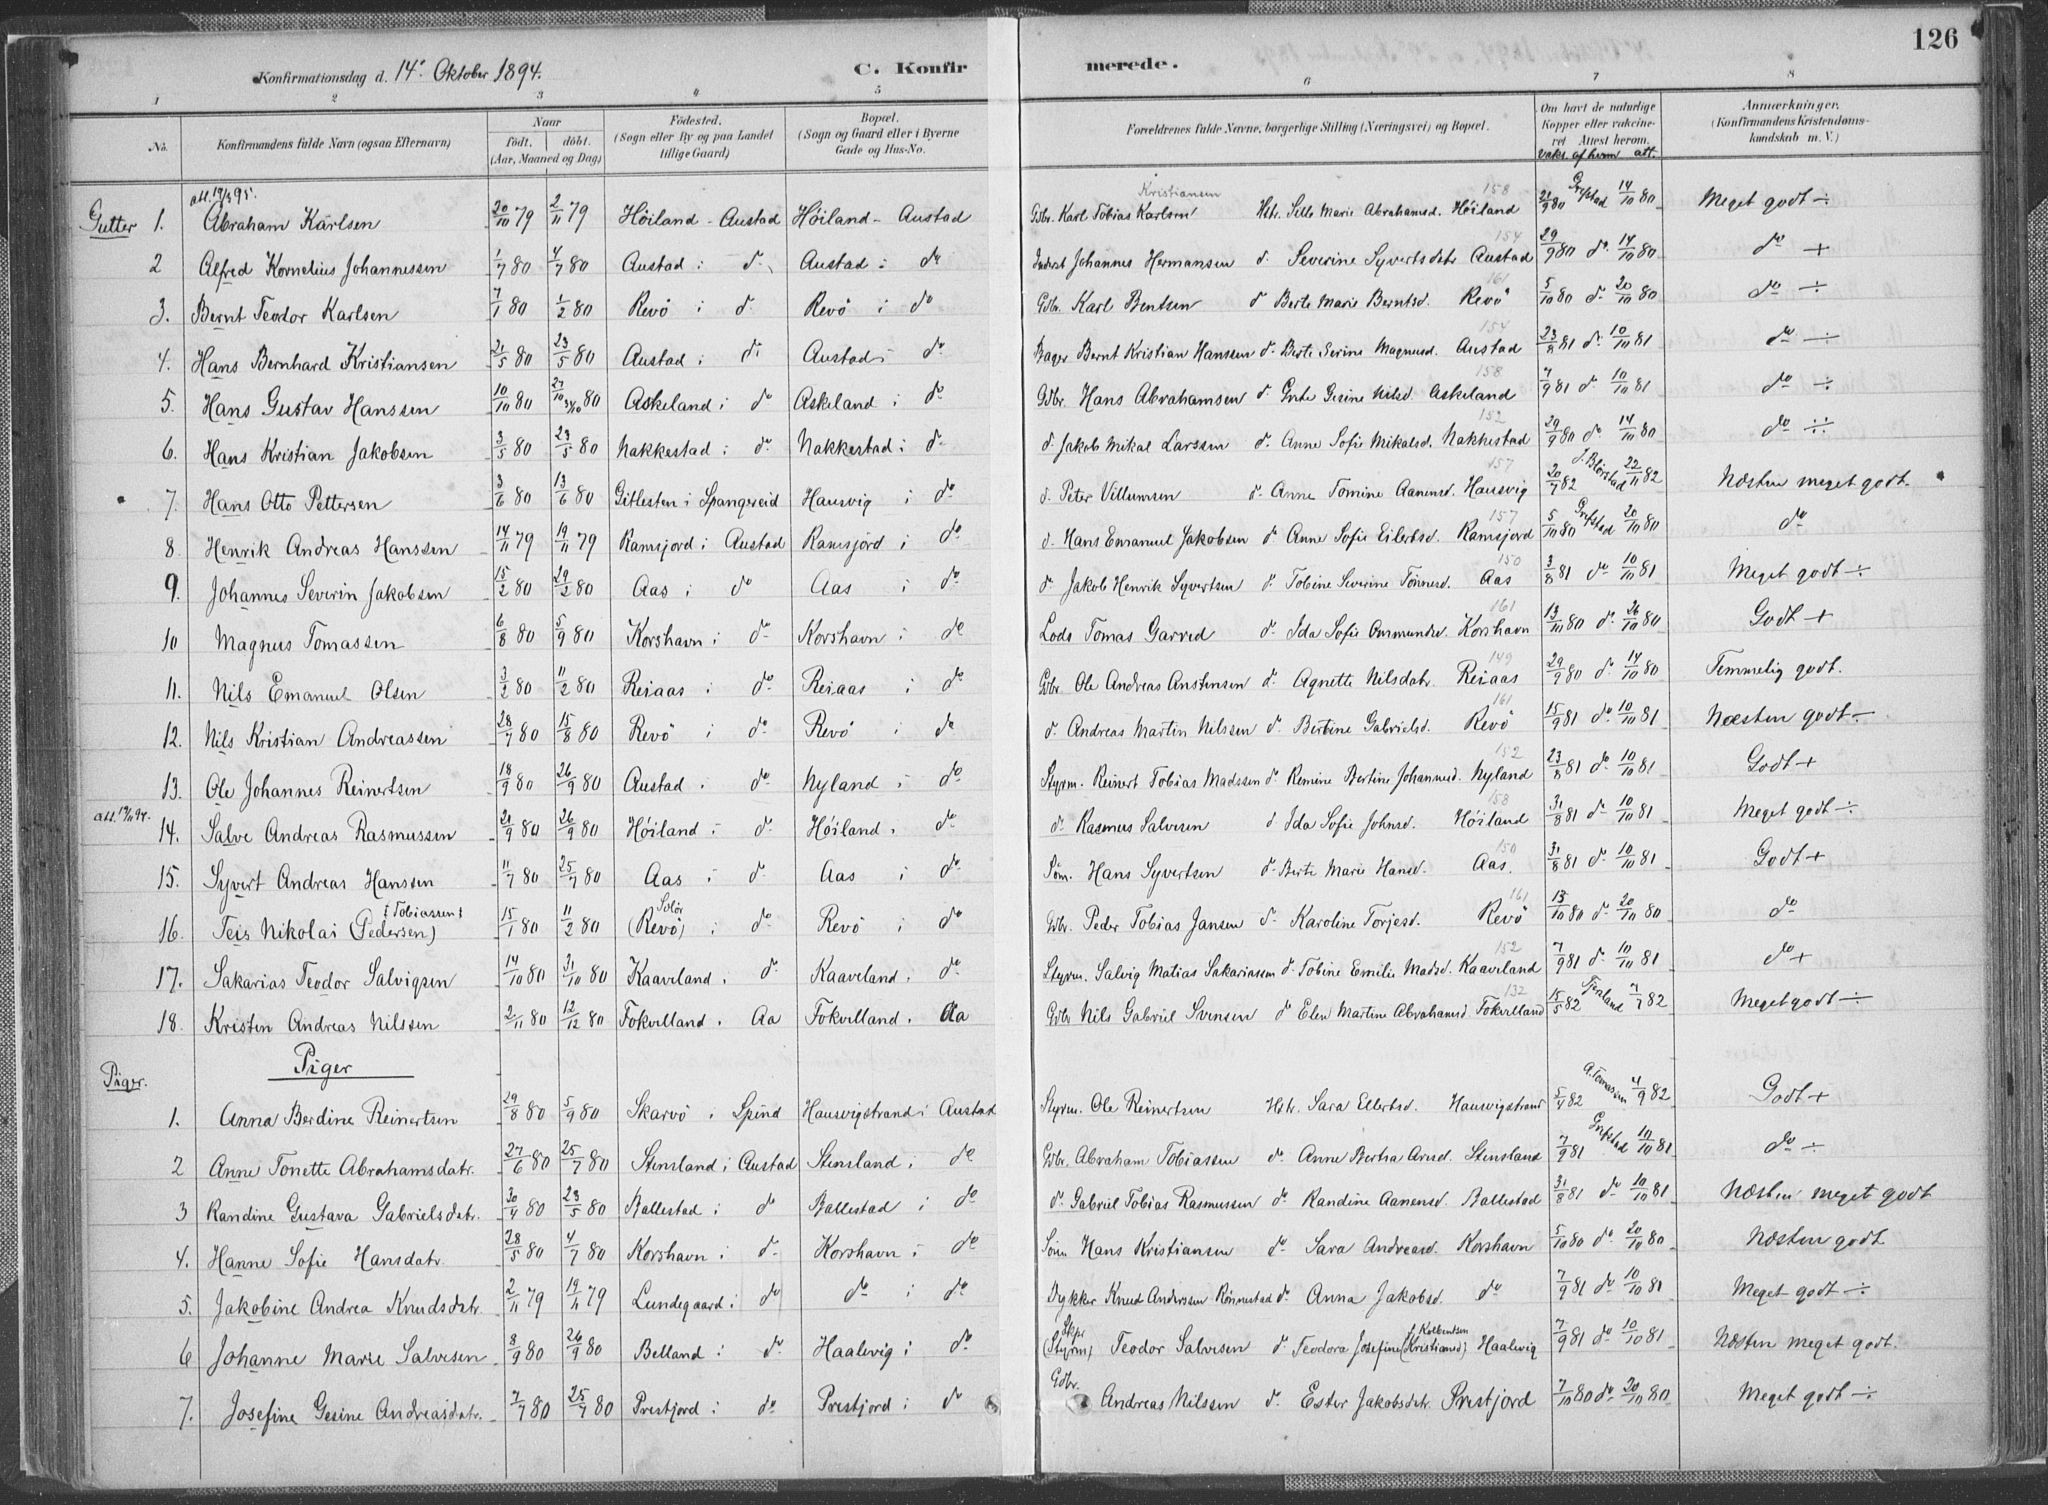 126
Konfirmationsdag d. 14de Oktober 1894.
C. Konfirmerede.
1 2 3 4 5 6 7 8
No.
Konfirmandens fulde Navn (ogsaa Efternavn)
Naar
födt. döbt.
(Aar, Maaned og Dag)
Födested.
(Sogn eller By og paa Landet tillige Gaard)
Bopæl.
(Sogn og Gaard eller i Byerne Gade og Hus-No.
Forældrenes fulde Navne, borgerlige Stilling (Næringsvei) og Bopæl.
Om havt de naturlige Kopper eller vakcineret Attest herom.
vaks. af hvem att.
Anmærkninger.
(Konfirmandens Kristendomskundskab m. V.)
att. 19/3 95.
Kristiansen 158
Gutter 1. Abraham Karlsen 20/10 79 2/11 79 Höiland - Austad Höiland - Austad Gdbr. Karl Tobias Karlsen Hstr. Sille Marie Abrahamsd. Höiland 21/9 80 Grifstad 14/10 80 Meget godt ÷
154
2 Alfred Kornelius Johannessen 1/7 80 4/7 80 Austad i do Austad i do Johannes Hermansen do Severine Syvertsdtr Austad 29/9 80 do 14/10 80 do +
161
3. Bernt Teodor Karlsen 7/1 80 1/2 80 Revö i do Revö i do Gdbr. Karl Bentsen do Berte Marie Berntsd. Revö 5/10 80 do 20/10 80 do ÷
154
4. Hans Bernhard Kristiansen 21/5 80 23/5 80 Austad i do Austad i do Bager Bernt Kristian Hanssen do Berte Serine Magnusd. Austad 23/8 81 do 10/10 81 do ÷
158
5. Hans Gustav Hanssen 10/10 80 27/10 31/10 80 Askeland i do Askeland i do Gdbr. Hans Abrahamsen do Grete Gesine Nilsd. Askeland 7/9 81 do 10/10 81 do ÷
152
6. Hans Kristian Jakobsen 3/5 80 23/5 80 Nakkestad i do Nakkestad i do do Jakob Mikal Larssen do Anne Sofie Mikalsd. Nakkestad 29/9 80 do 14/10 80 do ÷
157
7. Hans Otto Pettersen 3/6 80 13/6 80 Gitlesten i Spangereid Hausvig i do do Peter Villumsen do Anne Tomine Aanensd. Hausvig 20/7 82 J. Blörstad 22/11 82 Næsten meget godt.
157
8. Henrik Andreas Hanssen 14/11 79 19/11 79 Ramsjord i Austad Ramsjord i do do Hans Emanuel Jakobsen do Anne Sofie Eilertsd. Ramsjord 5/10 80 Grifstad 20/10 80 do
150
9. Johannes Severin Jakobsen 15/2 80 29/2 80 Aas i do Aas i do do Jakob Henrik Syvertsen do Tobine Severine Tönnesd. Aas 3/8 81 do 10/10 81 Meget godt ÷
161
10 Magnus Tomassen 6/8 80 5/9 80 Korshavn i do Korshavn i do Lods Tomas Garred do Ida Sofie Osmundsd. Korshavn 13/10 80 do 26/10 80 Godt +
149
11. Nils Emanuel Olsen 3/2 80 11/2 80 Reiaas i do Reiaas i do Gdbr. Ole Andreas Anstensen do Agnette Nilsdatr. Reiaas 29/9 80 do 14/10 80 Temmelig godt.
161
12. Nils Kristian Andreassen 28/7 80 15/8 80 Revö i do Revö i do do Andreas Martin Nilssen do Bertine Gabrielsd. Revö 15/9 81 do 10/10 81 Næsten godt ÷
152
13. Ole Johannes Reinertsen 18/9 80 26/9 80 Austad i do Nyland i do Styrm. Reinert Tobias Madssen do Remine Bertine Johannesd. Nyland 23/8 81 do 10/10 81 Godt +
att. 19/11 94. 158
14. Salve Andreas Rasmussen 21/9 80 26/9 80 Höiland i do Höiland i do do Rasmus Salvesen do Ida Sofie Johnsd. Höiland 31/8 81 do 10/10 81 Meget godt ÷
150
15. Syvert Andreas Hanssen 11/7 80 25/7 80 Aas i do Aas i do Söm. Hans Syvertsen do Berte Marie Hansd. Aas. 31/8 81 do 10/10 81 Godt +
(Tobiassen) Selör 161
16. Teis Nikolai (Pedersen) 15/1 80 11/2 80 (Revö) i do Revö i do Gdbr. Peder Tobias Jansen do Karoline Torjesd. Revö 13/10 80 do 20/10 80 do
152
17. Sakarias Teodor Salvigsen 14/10 80 31/10 80 Kaaveland i do Kaaveland i do Styrm. Salvig Matias Sakariassen do Tobine Emilie Madsd. Kaaveland 7/9 81 do 10/10 81 do +
132
18. Kristen Andreas Nilssen 2/11 80 12/12 80 Fokvelland i Aa Fokvelland i Aa Gdbr Nils Gabriel Svensen do Elen Martine Abrahamsd. Fokvelland 15/5 82 7/7 82 Meget godt ÷
Piger
Piger. 1. Anna Berdine Reinertsen 29/8 80 5/9 80 Skarvö i Spind Hausvigstrand i Austad Styrm. Ole Reinertsen Hstr. Sara Ellertsd. Hausvigstrand 5/4 82 A. Tomassen 4/9 82 Godt +
2 Anne Tonette Abrahamsdatr. 27/6 80 25/7 80 Stensland i Austad Stensland i do Gdbr. Abraham Tobiassen do Anne Bertha Arnsd. Stensland 7/9 81 Grifstad 10/10 81 do ÷
3 Randine Gustava Gabrielsdtr. 30/4 80 23/5 80 Ballestad i do Ballestad i do do Gabriel Tobias Rasmussen do Randine Aanensd. Ballestad 31/8 81 do 10/10 81 Næsten meget godt
4. Hanne Sofie Hansdatr. 28/5 80 4/7 80 Korshavn i do Korshavn i do Söm Hans Kristiansen do Sara Andreasd. Korshavn 5/10 80 do 20/10 80 Næsten godt
5. Jakobine Andrea Knudsdtr. 2/11 79 19/11 79 Lundegaard i do do i do Dykker Knud Anderssen Rönnestad do Anna Jakobsd. do 7/9 81 do 10/10 81 Meget godt ÷
Skpr Kolbentsen
6 Johanne Marie Salvesen 8/9 80 26/9 80 Belland i do Haalevig i do (Styrm) Teodor Salvesen do Teodora Josefine (Kristiansd) Haalevig 7/9 81 do 10/10 81 Næsten meget godt.
7. Josefine Gesine Andreasdatr. 7/7 80 25/7 80 Prestjord i do Prestjord i do Gdbr. Andreas Nilssen do Ester Jakobsdtr. Prestjord 7/10 80 do 20/10 80 Meget godt ÷